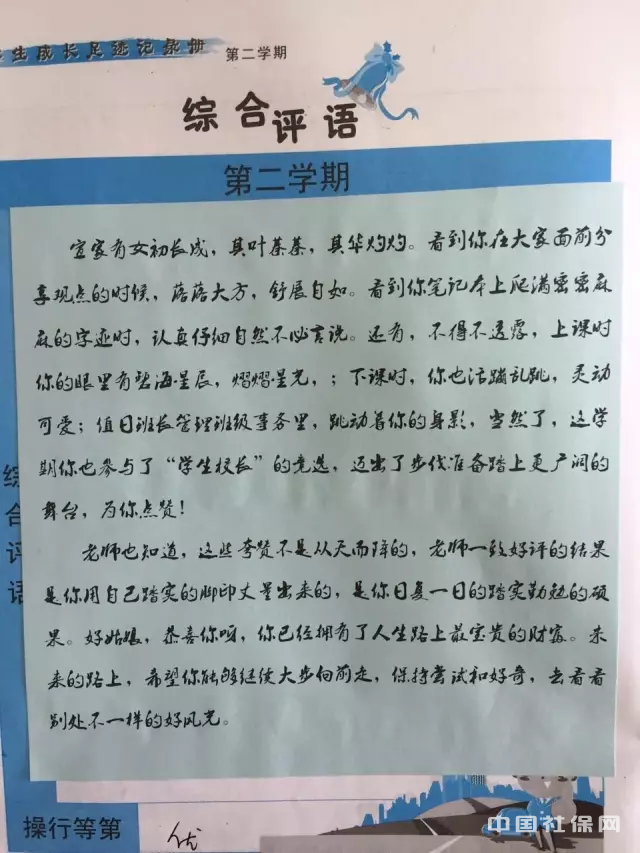 生成长足迹记录册 第二学期
综合评语
第二学期
宜家有女初长成，其叶蓁蓁，其华灼灼。看到你在大家面前分
享观点的时候，落落大方，舒展自如。看到你笔记本上爬满密密麻
麻的字迹时，认真仔细自然不必言说。还有，不得不透露，上课时
你的眼里有碧海星辰，熠熠星光，；下课时，你也活蹦乱跳，灵动
可爱；值日班长管理班级事务里，跳动着你的身影，当然了，这学
期你也参与了“学生校长”的竞选，迈出了步伐准备踏上更广阔的
舞台，为你点赞！
老师也知道，这些夸赞不是从天而降的，老师一致好评的结果
是你用自己踏实的脚印丈量出来的，是你日复一日的踏实勤勉的硕
果。好姑娘，恭喜你呀，你已经拥有了人生路上最宝贵的财富。未
来的路上，希望你能够继续大步向前走，保持尝试和好奇，去看看
别处不一样的好风光。
综合评语
操行等第 优
中国社保网